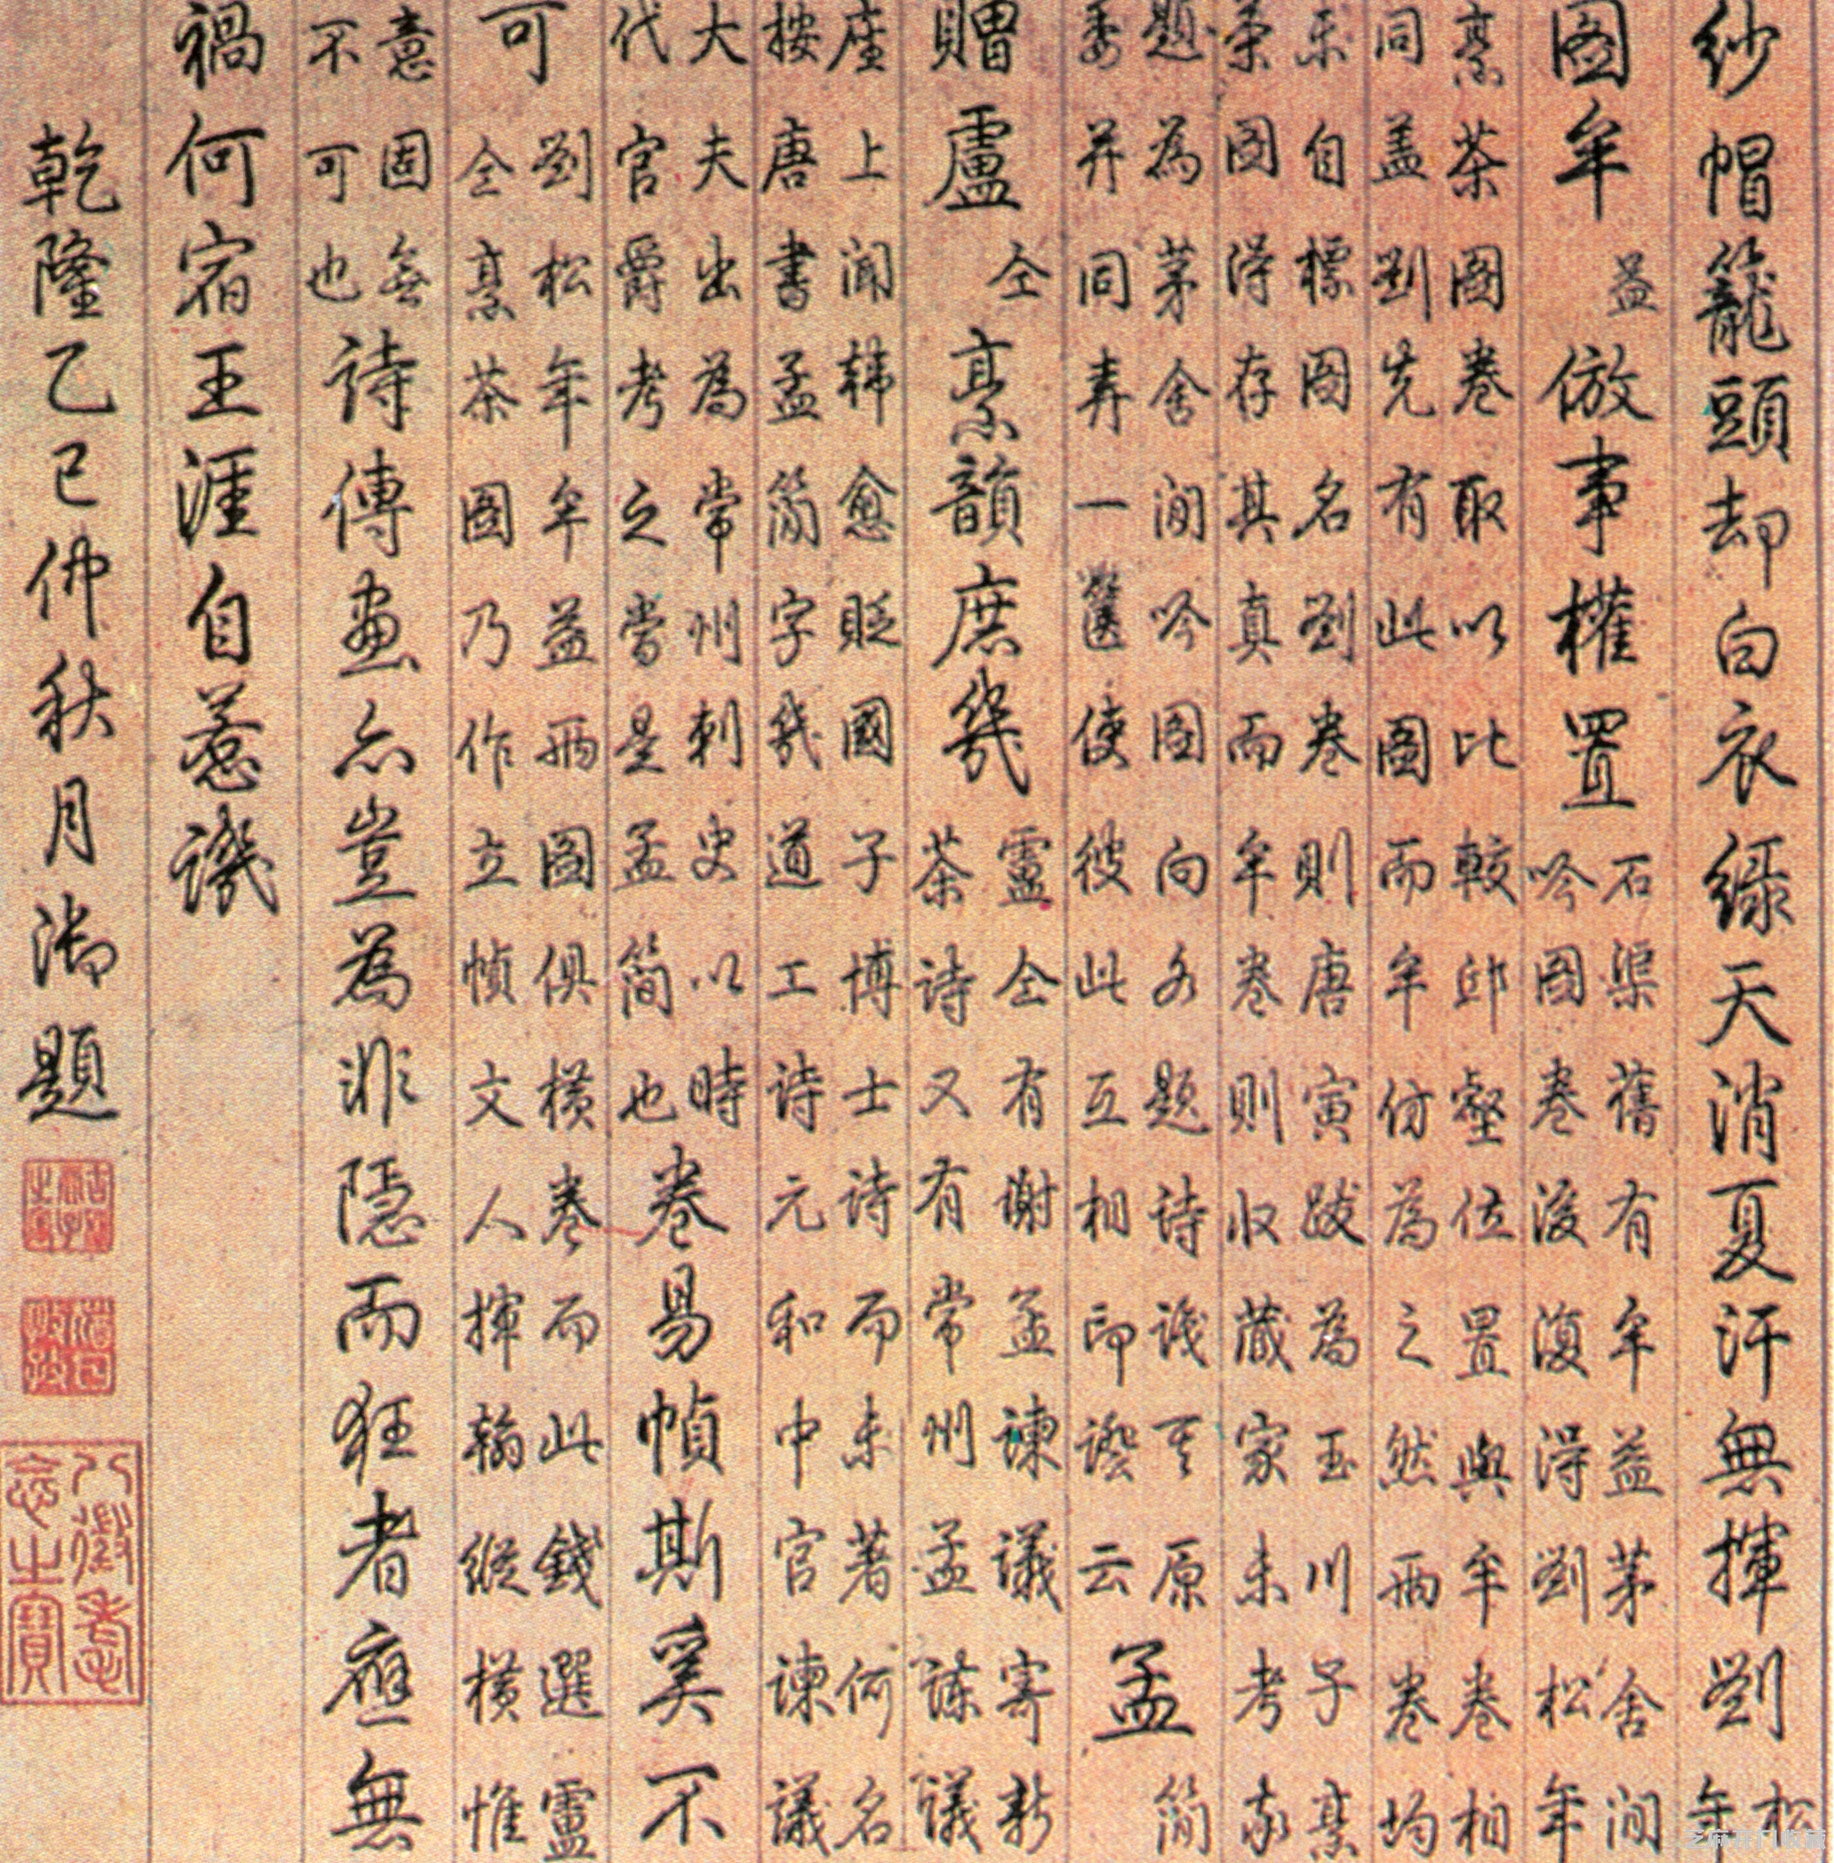 紗帽籠頭却白衣綠天消夏汗無揮劉松年
圖牟益倣事權置石渠舊有牟益茅舍間
吟圖卷後復得劉松年
烹茶圖卷取以比較邱壑位置與牟卷相
同盖劉先有此圖而牟仿為之然兩卷均
未自標圖名劉卷則唐寅跋為玉川子烹
茶圖得存其真而牟卷則收藏家未考故
題為茅舍間吟圖向各題詩識其原
委并同弆一篋使彼此互相印證云孟簡
贈盧仝烹韻庶幾盧仝有謝孟諫議寄新
茶詩又有常州孟諫議
座上聞韓愈貶國子博士詩而未著何名
按唐書孟簡字幾道工詩元和中官諫議
大夫出為常州刺史以時
代官爵考之當是孟簡也卷易幀斯奚不
可劉松年牟益兩圖俱橫卷而此錢選盧
仝烹茶圖乃作立幀文人揮翰縱橫惟
意固無
不可也詩傳畫亦豈為非隱而狂者應無
禍何宿王涯自惹譏
乾隆乙巳仲秋月御題
古稀天子之寶
猶日孜孜
八徵耄念之寶